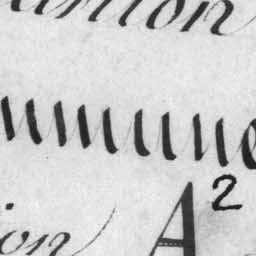 union
mmune
ion A²